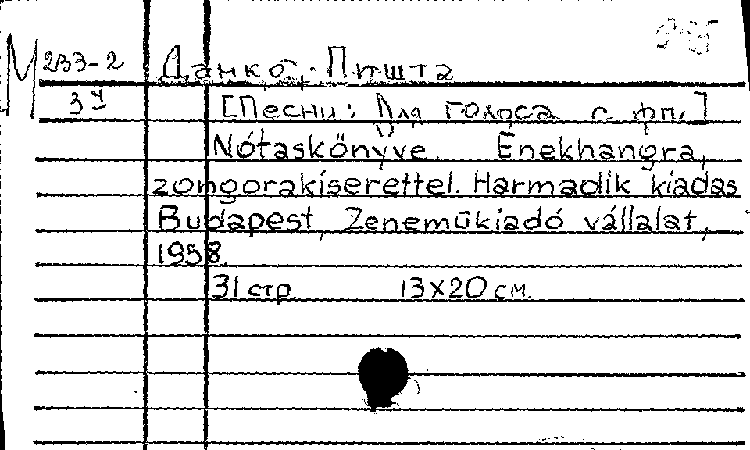 М 233-2 Данко, Пишта
[Песни: Для голоса с фп.]
Nótáskönyve. Énekhangra,
zongorakiserettel. Harmadik kiadas
Budapest, Zeneműkiadó vállalat,
1958.
31 стр 13x20 см.